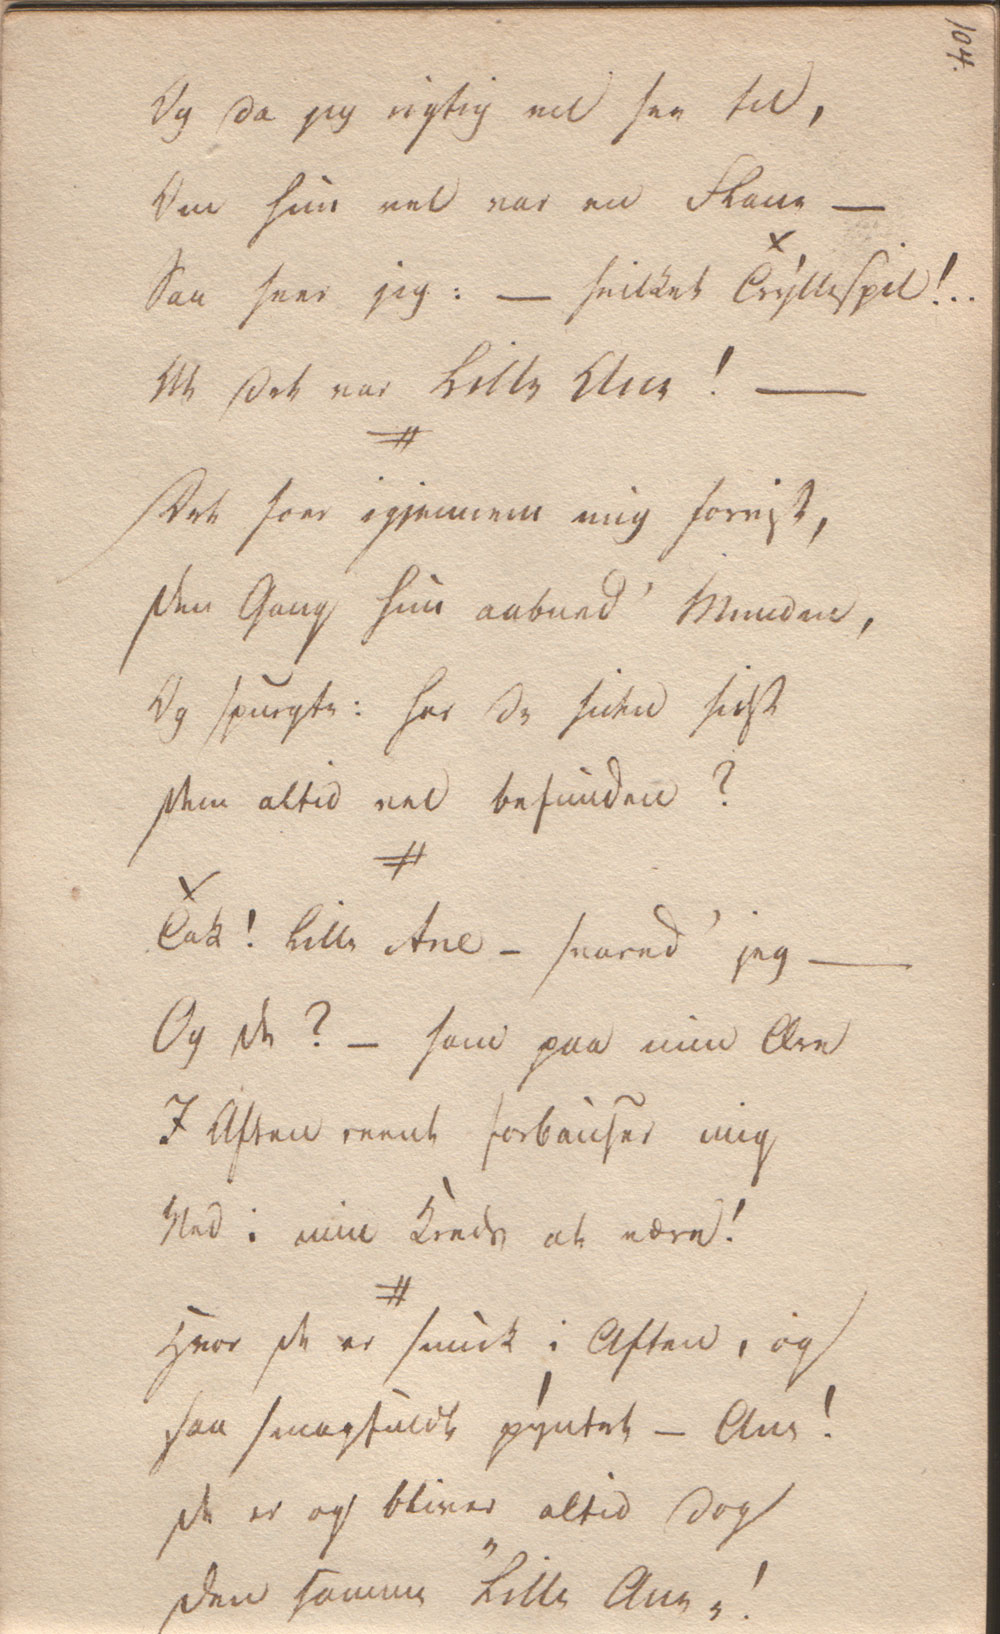 104.
Og da jeg rigtig vel saae til,
Om hun vel var en Skane —
Saa seer jeg: — hvilket Tryllespil!..
At det var Lille Ane! —
Det foer igjennem mig forvist,
Den Gang hun aabned' Munden,
Og spurgte: har De siden sidst
Dem altid vel befunden?
Tak! Lille Ane – svared' jeg —
Og De? – som paa min Ære
I Aften reent forbauser mig
Ved i min Kreds at være!
Hvor De er smuk i Aften, og
saa smagfuldt pyntet – Ane!
De er og bliver altid dog
Den samme „Lille Ane„!